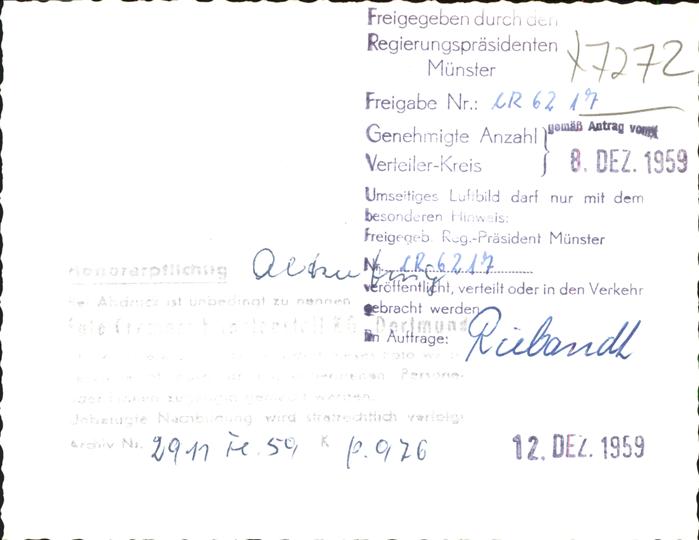 Freigegeben durch den
Regierungspräsidenten
Münster
17272
Freigabe Nr.: CR 62 17
Genehmigte Anzahl
Verteiler-Kreis
gemäß Antrag vom
8. DEZ. 1959
Umseitiges Luftbild darf nur mit dem
besonderen Hinweis:
Freigegeb. Reg.-Präsident Münster
Nr. CR 6217
veröffentlicht, verteilt oder in den Verkehr
gebracht werden
Im Auftrage:
Honorarpflichtig
Bei Abdruck ist unbedingt zu nennen
Foto Cramers Kunstanstalt KG, Dortmund
Personen
oder Firmen zugängig gemacht werden.
Unbefugte Nachbildung wird strafrechtlich verfolgt
Archiv Nr. 2911 Fe. 59 K p. 976
12. DEZ. 1959